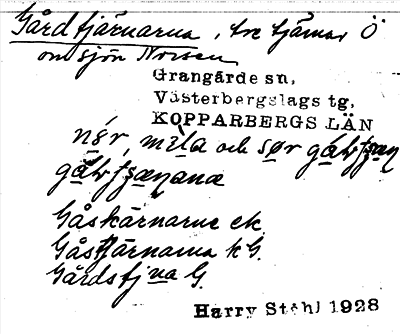 Gårdtjärnarna, tre tjärnar Ö
om sjön Norsen
Grangärde sn,
Västerbergslags tg,
KOPPARBERGS LÄN
nɵr, mɛla och sør
Gåskärnarne ek.
Gåstjärnarna kG.
Gårdstjna G.
Harry Ståhl 1928